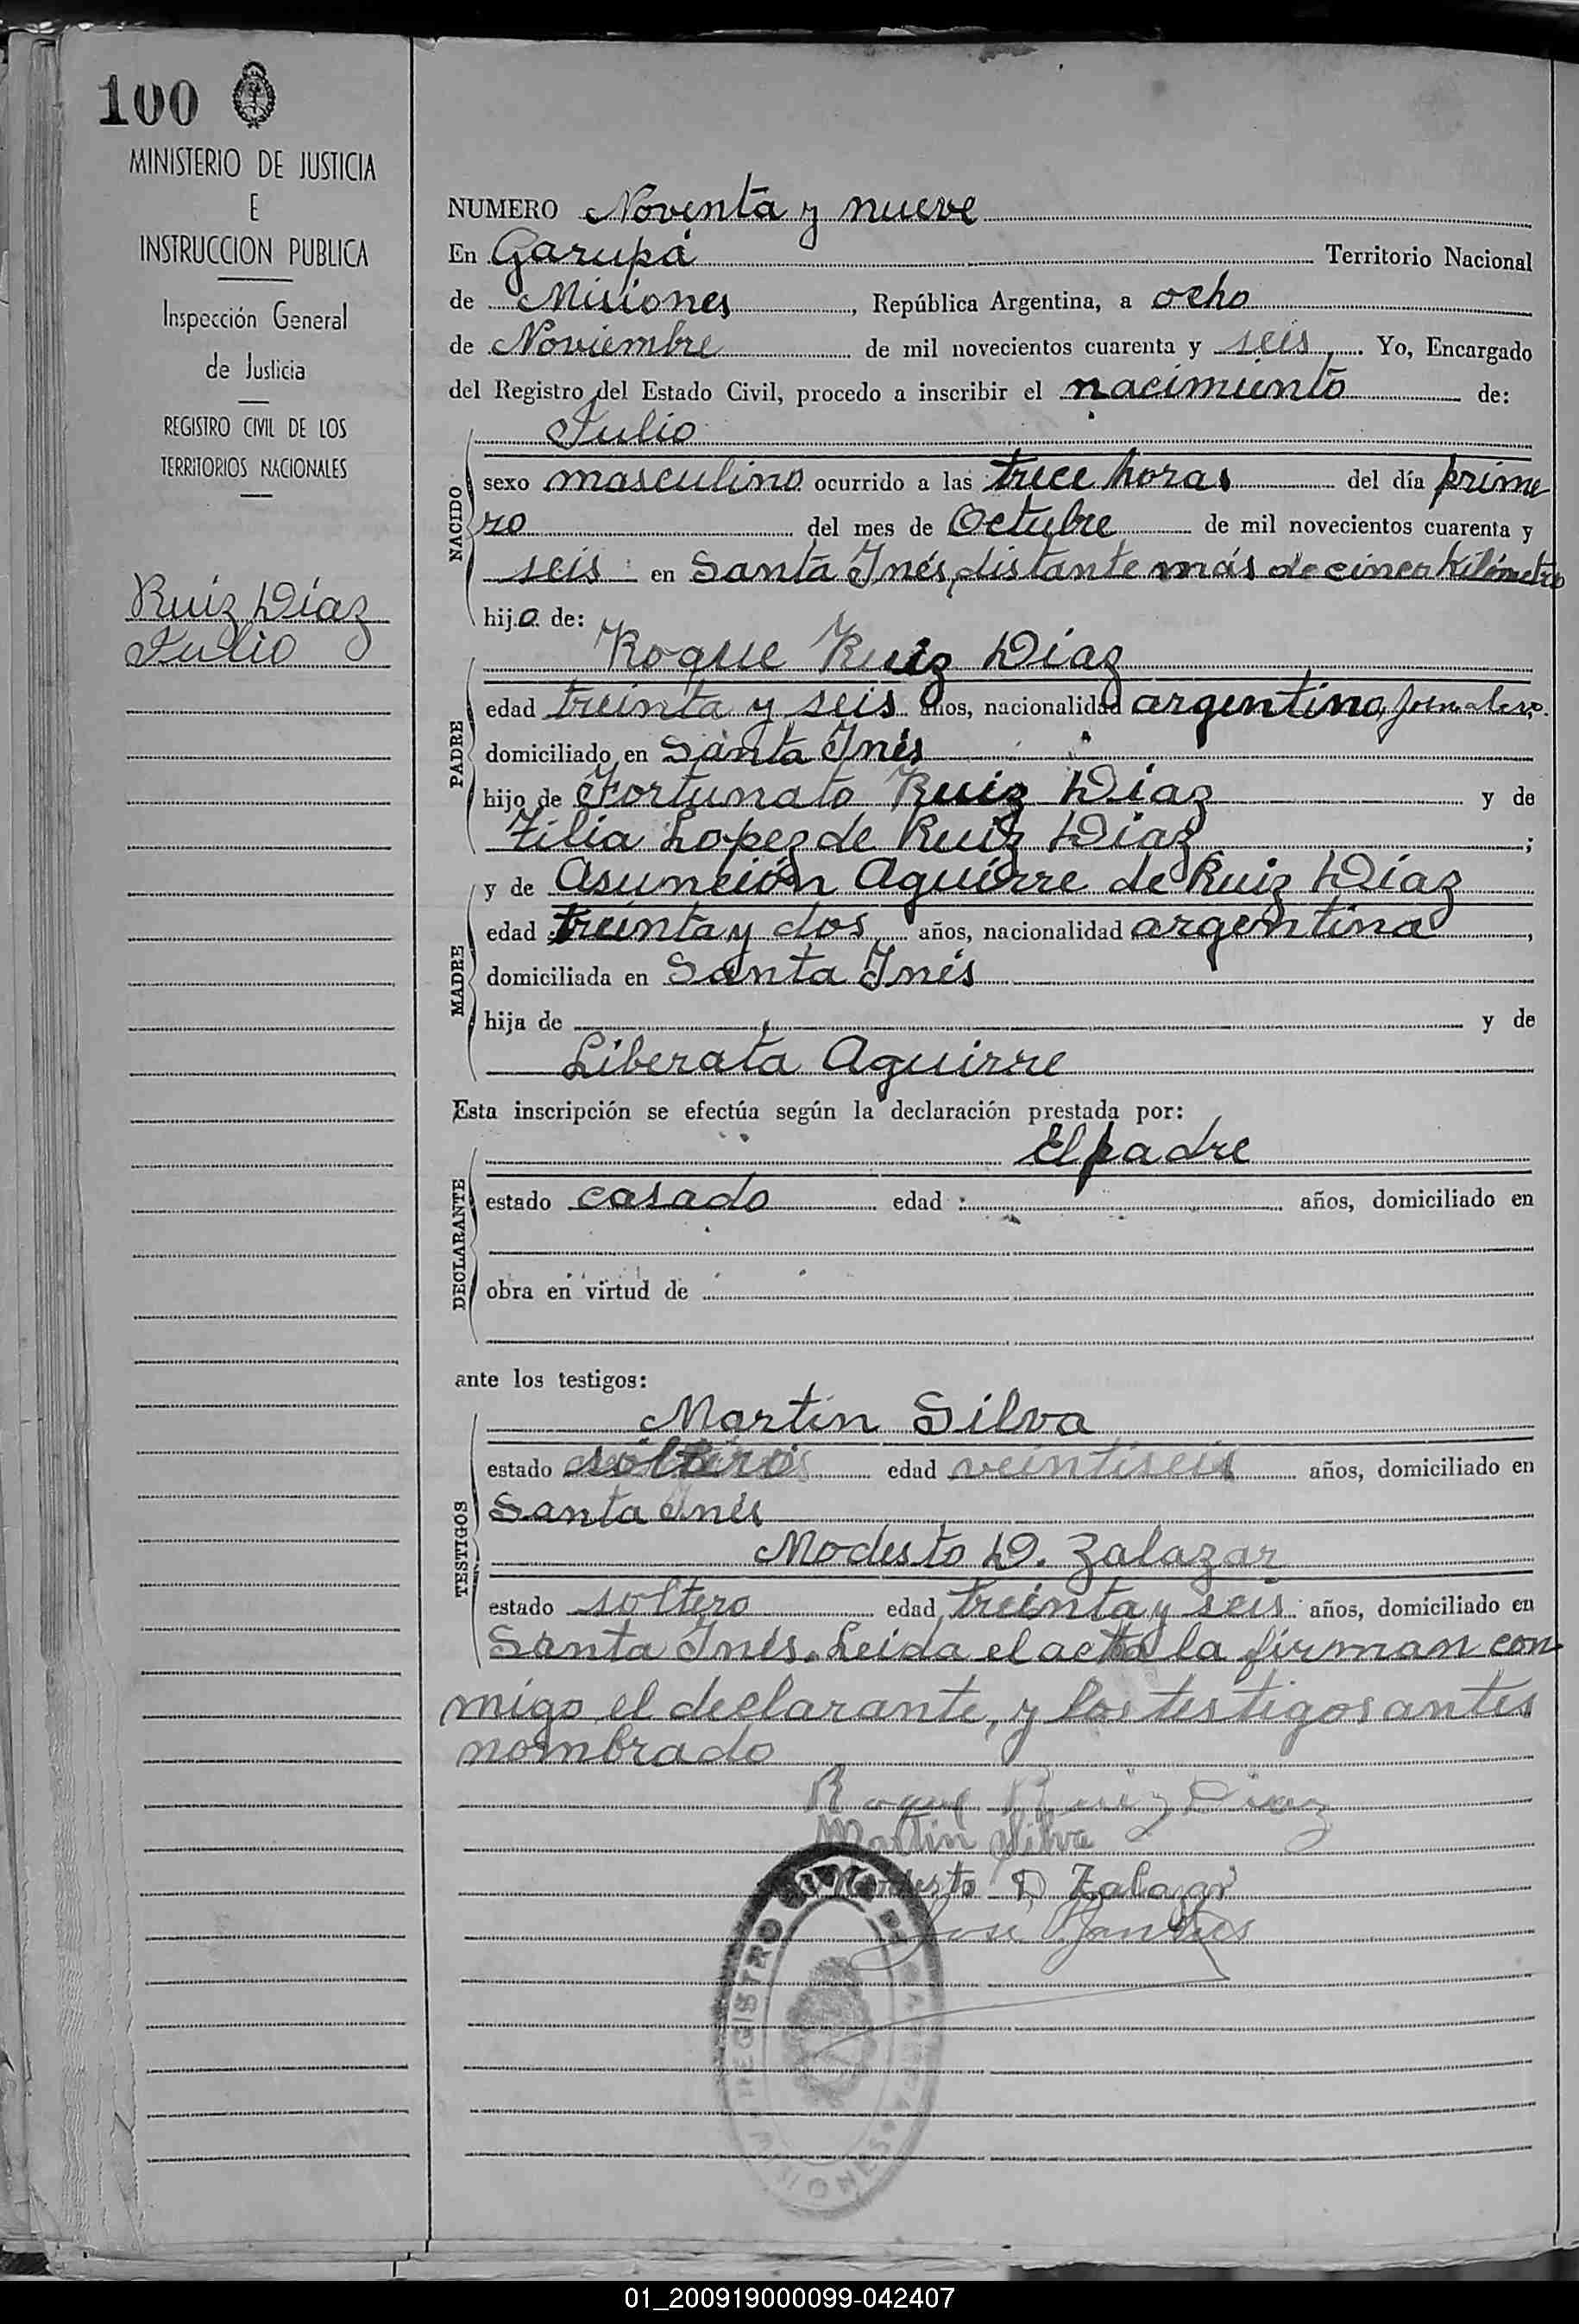 100
MINISTERIO DE JUSTICIA
E
INSTRUCCION PUBLICA
Inspección General
de Justicia
REGISTRO CIVIL DE LOS
TERRITORIOS NACIONALES
Ruiz Díaz
Julio
NUMERO Noventa y nueve
En Garupá Territorio Nacional
de Misiones, República Argentina, a ocho
de Noviembre de mil novecientos cuarenta y seis. Yo, Encargado
del Registro del Estado Civil, procedo a inscribir el nacimiento de:
Julio
NACIDO
sexo masculino ocurrido a las trece horas del día prime
ro del mes de Octubre de mil novecientos cuarenta y
seis en Santa Inés, distante más de cinco kilómetro
hijo de:
Roque Ruiz Díaz
PADRE
edad treinta y seis años, nacionalidad argentino, jornalero.
domiciliado en Santa Inés
hijo de Fortunato Ruiz Diaz y de
Zilia Lopez de Ruiz Diaz;
MADRE
y de Asunción Aguirre de Ruiz Díaz
edad treinta y dos años, nacionalidad argentina,
domiciliada en Santa Inés
hija de y de
Liberata Aguirre
Esta inscripción se efectúa según la declaración prestada por:
El padre
DECLARANTE
estado casado edad años, domiciliado en
obra en virtud de
ante los testigos:
Martin Silva
TESTIGOS
estado soltero edad veintiseis años, domiciliado en
Santa Inés
Modesto D. Zalazar
estado soltero edad treinta y seis años, domiciliado en
Santa Inés. Leida el acta la firman con
migo, el declarante, y los testigos antes
nombrado
Roque Ruiz Diaz
Martin Silva
Modesto D Zalazar
José
REGISTRO CIVIL
MISIONES
01_200919000099-042407